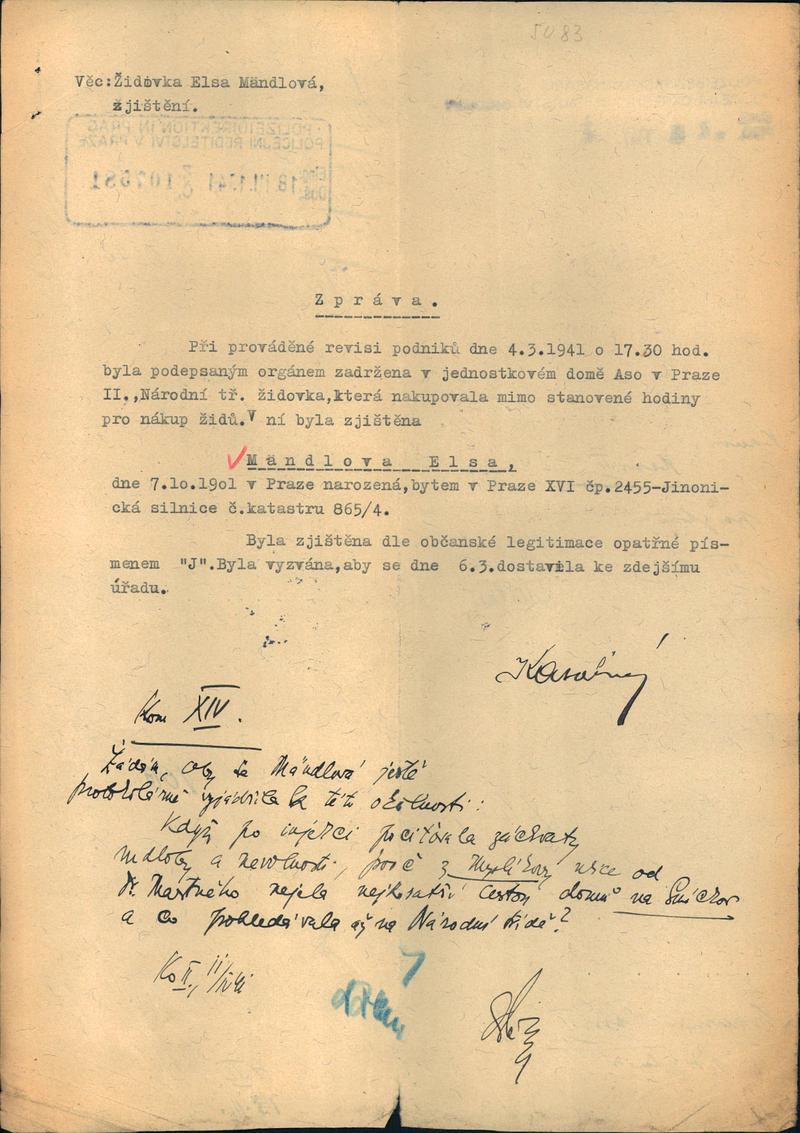 5083
Věc:Židovka Elsa Mändlová,
zjištění.
POLIZEIDIREKTION IN PRAG
POLICEJNÍ ŘEDITELSTVÍ V PRAZE
Zpráva.
Při prováděné revisi podniků dne 4.3.1941 o 17.30 hod.
byla podepsaným orgánem zadržena v jednostkovém domě Aso v Praze
II.,Národní tř. židovka,která nakupovala mimo stanovené hodiny
pro nákup židů.V ní byla zjištěna
Mändlova Elsa,
dne 7.lo.19ol v Praze narozená,bytem v Praze XVI čp.2455-Jinoni-
cká silnice č.katastru 865/4.
Byla zjištěna dle občanské legitimace opatřné pís-
menem "J".Byla vyzvána,aby se dne 6.3.dostavila ke zdejšímu
úřadu.
Kom XIV.
Žádám, aby se Mändlová ještě
protokolárně vyjádřila k této okolnosti:
Když po injekci pociťovala záchvaty
mdloby a nevolnosti, proč z Myslíkovy ulice od
Dr. Mastného nejela nejkratší cestou domů na Smíchov
a co pohledávala až na Národní třídě?
Ko II.,